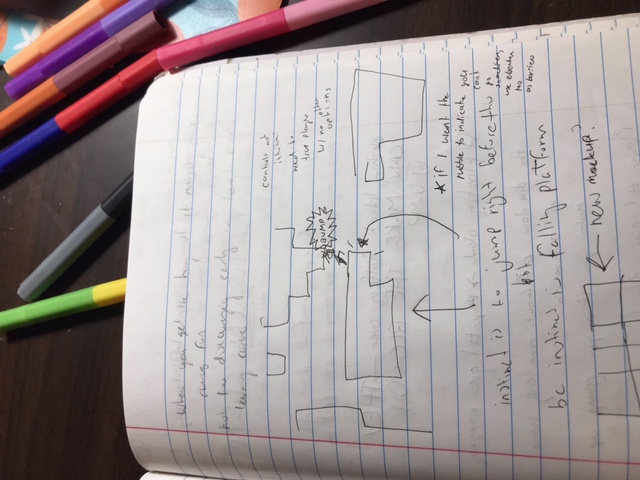 When you get the hang of it moving
curves fun
not too discouraging early
learning curve
controls not
intuitive
need to
true player
w/ no other
options
BUMP
* if I want the
rubble to indicate you
can't
go
somewhere,
use elsewhere
too
as barriers
instinct is to jump right before the
bc instinct is falling platform
← new mockup?